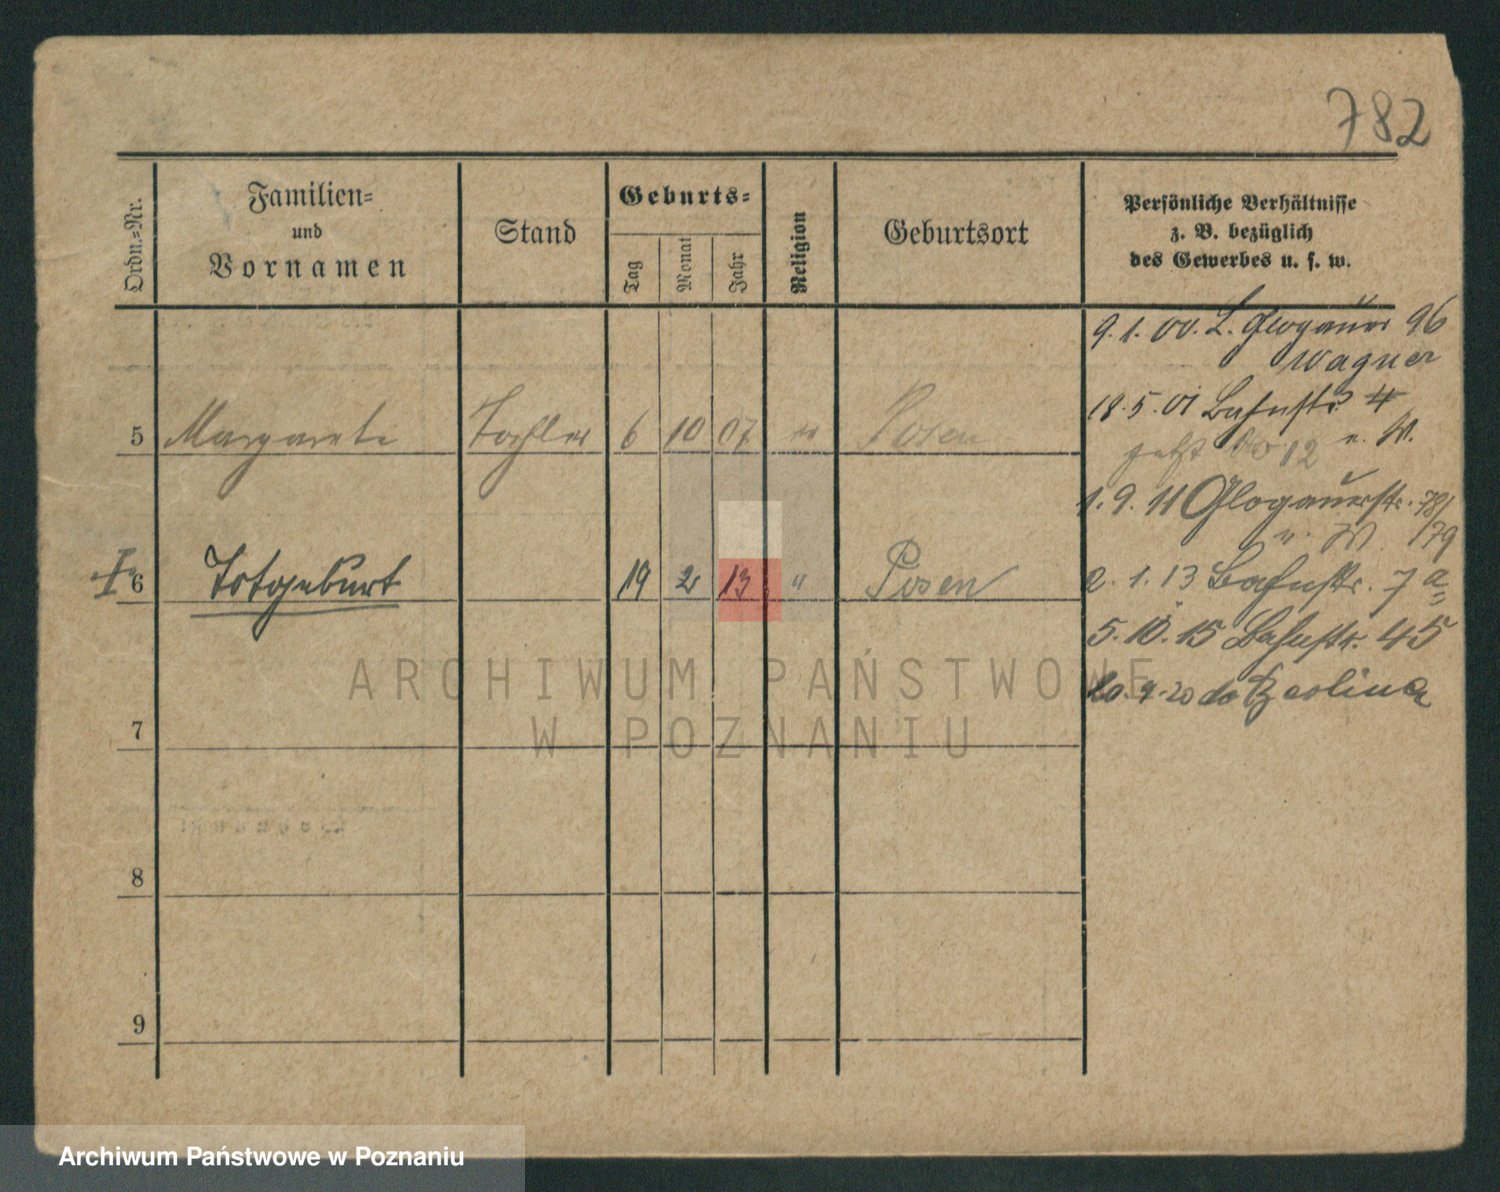 782
Ordn.-Nr.
Familien-
und
Vornamen
Stand
Geburts-
Tag
Monat
Jahr
Religion
Geburtsort
Persönliche Verhältnisse
z. B. bezüglich
des Gewerbes u. s. w.
5 Margarete Tochter 6 10 07 " Posen
6 Totgeburt 19 2 13 " Posen
7
8
9
9.1.00. L. Glogauer 96
Wagner
18.5.01 Bahnstr. 4
jetzt do 12 u. W.
1.9.11 Glogauerstr. 78/
u. W. 79
2.1.13 Bahnstr. 7a
5.10.15 Bahnstr. 45
20.9.20 do Berlina
ARCHIWUM PAŃSTWOWE
W POZNANIU
Archiwum Państwowe w Poznaniu